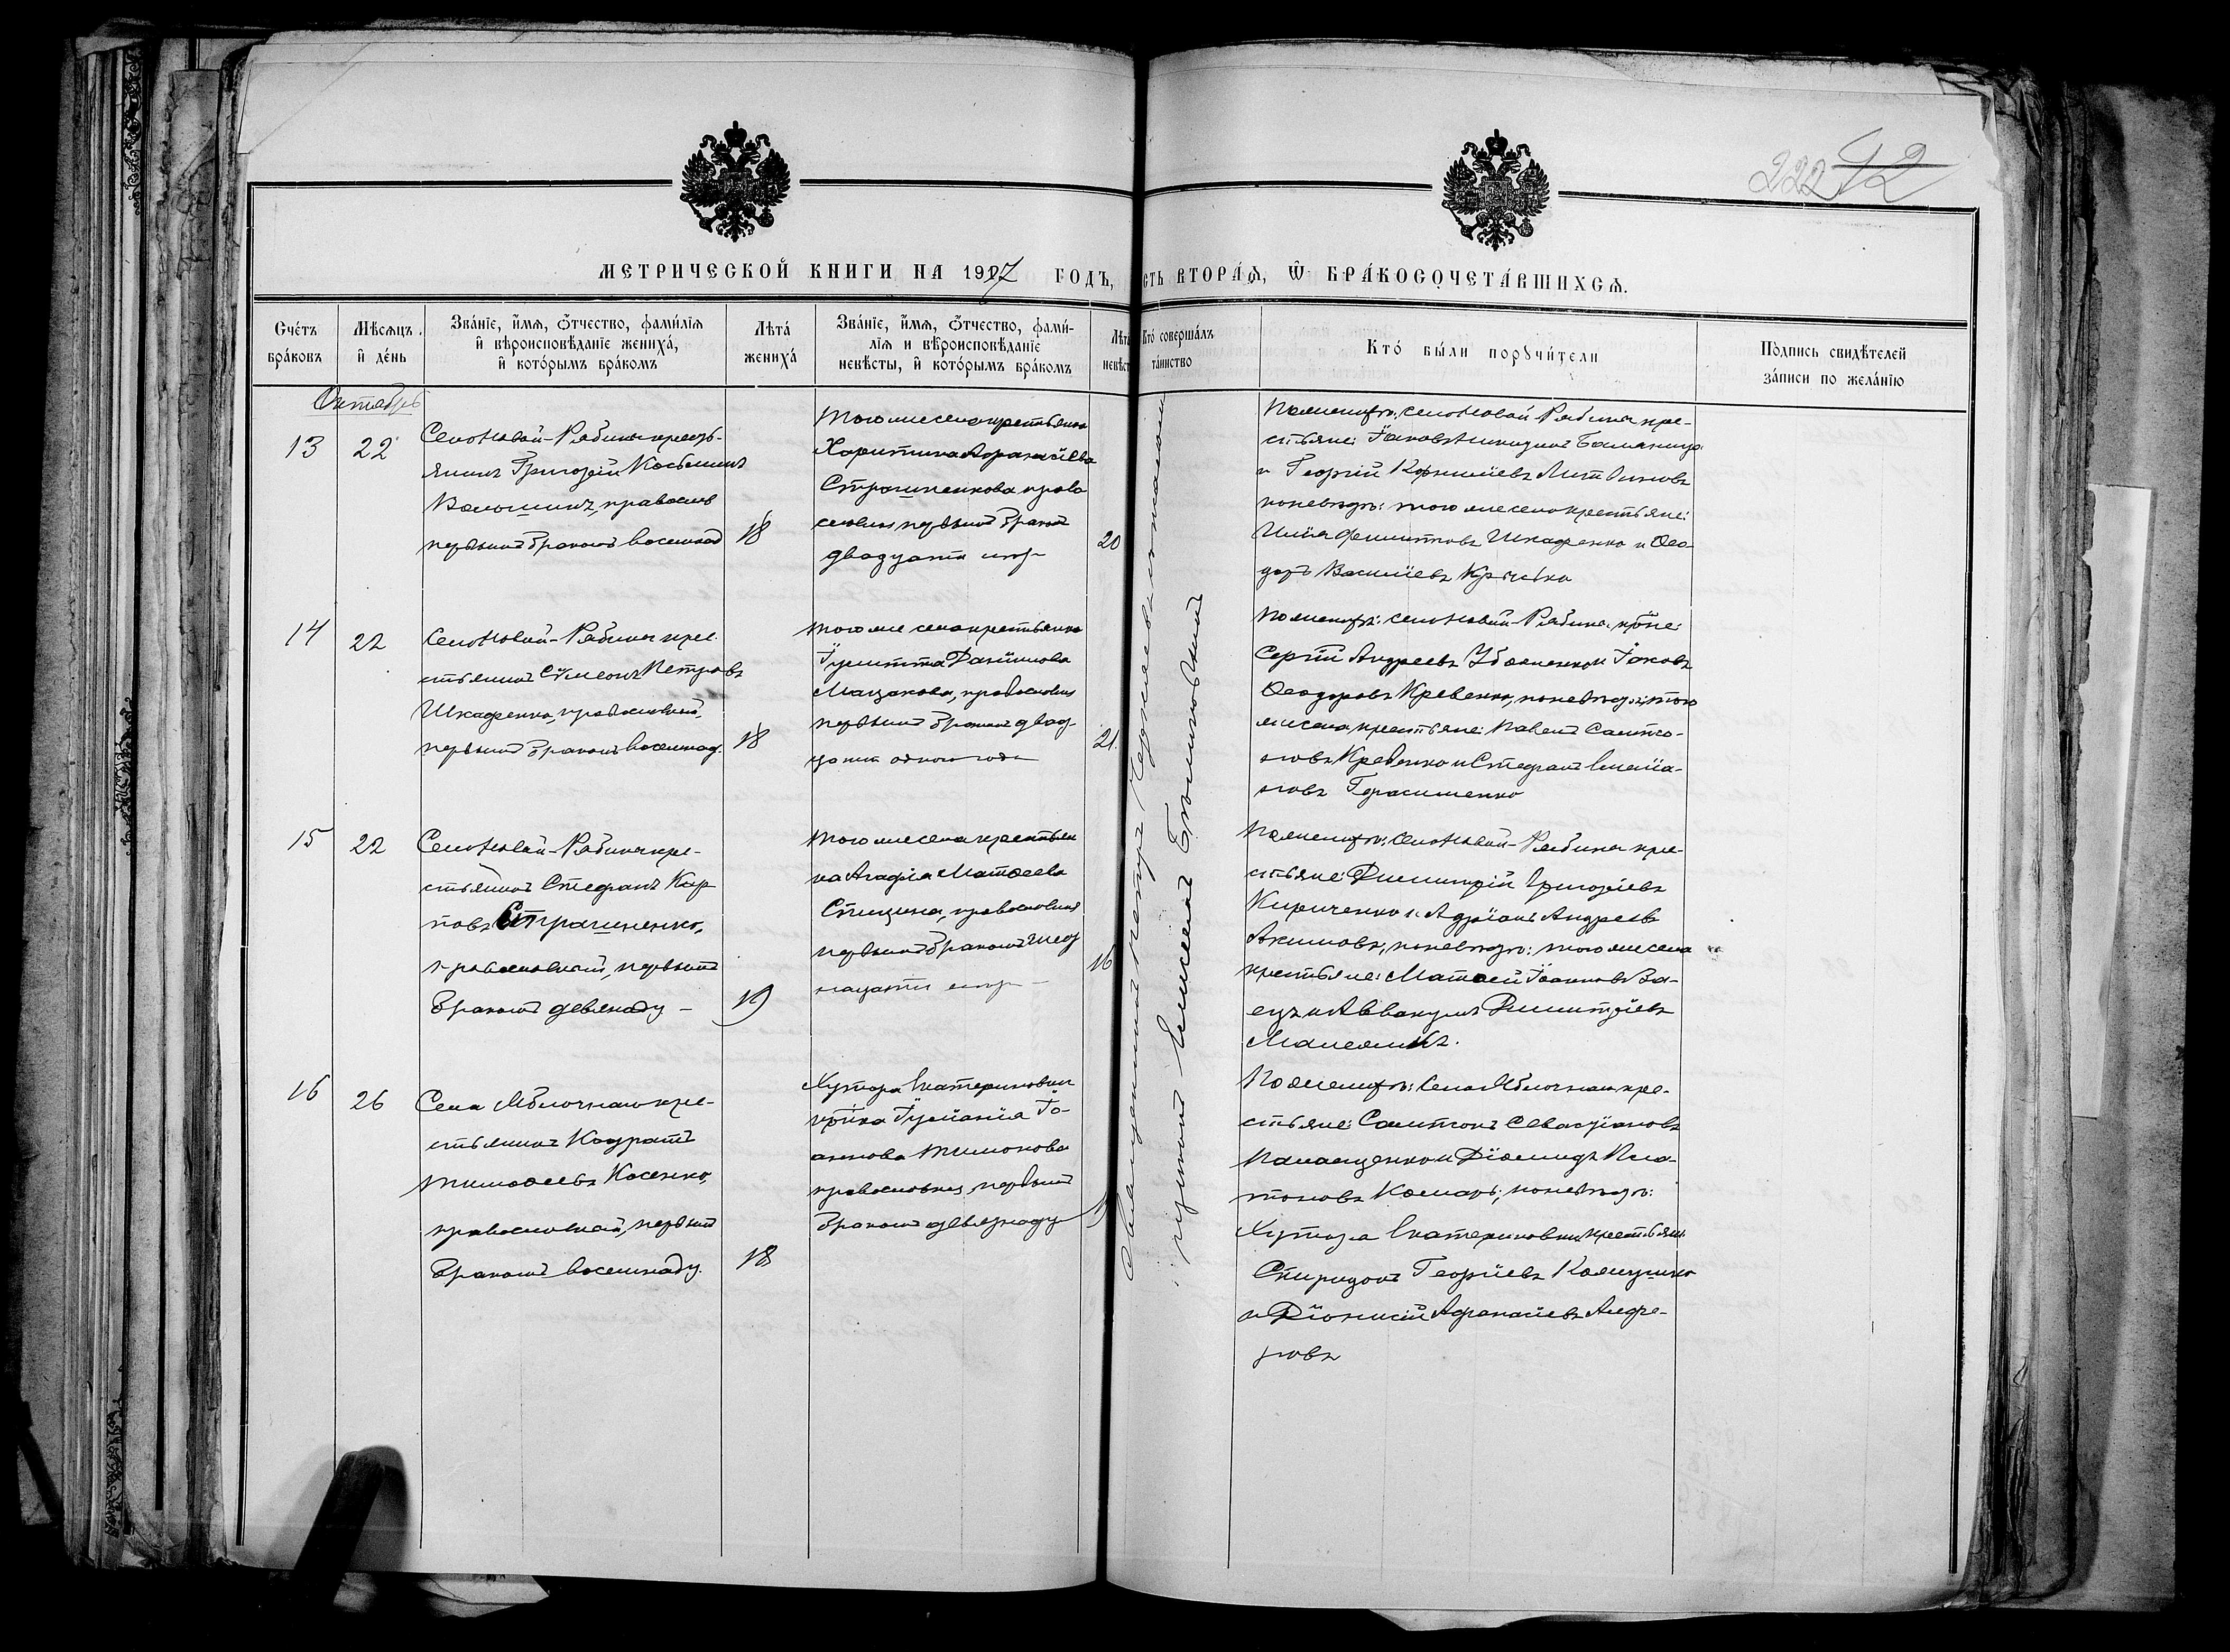 222 42
МЕТРИЧЕСКОЙ КНИГИ НА 1917 ГОДЪ, СТЬ ВТОРА́Ѧ, Ѿ БРА́КОСОЧЕТА́ВШИХСѦ.
Сче́тъ бра́ковъ
Мѣсѧцъ и де́нь
Зва́нїе, и́мѧ, ѻ́тчество, фами́лїѧ
и вѣроисповѣ́данїе жениха́,
и кото́рымъ бра́комъ
Лѣта́ жениха́
Зва́нїе, и́мѧ, ѻ́тчество, фами́-
лїѧ и вѣроисповѣ́данїе
невѣ́сты, и кото́рымъ бра́комъ
Лѣта невѣст
Кто́ соверша́лъ та́инство
Кто́ бы́ли порꙋчи́тели
По́дпись свидѣ́телей
за́писи по жела́нїю
Октябрь
13
22
Села Новой-Рябины кресть-
янинъ Григорій Косьминъ
Волошинъ, правосл
первымъ бракомъ восемнад
18
того же села крестьянка
Харитина Афанасіева
Страшненкова право
славн первымъ бракомъ
двадцати
20
По женихѣ: села Новой Рябины кре-
стьяне: Іаковъ
и Георгій Корниліевъ Литвиновъ
по невѣстѣ: того же села крестьяне:
Илія Филипповъ Шкафенко и Ѳео-
доръ Василіевъ
14
22
Села Новой-Рябины кре
стьянинъ Сѵмеонъ Петровъ
Шкафенко, православный,
первымъ бракомъ восемнад.
18
того же села крестьянка
Іулитта Даніилова
православная
первымъ бракомъ двад
цати одного года
21.
По женихѣ: села Новой-Рябины кр-не:
Сергій Андреевъ и Іаковъ
Ѳеодоровъ Кревенко, по невѣстѣ: того
же села крестьяне: Павелъ Самсо-
новъ Кревенко и Стефанъ
новъ Герасименко
15
22
Села Новой-Рябины кре-
стьянинъ Стефанъ Кар
повъ Страшненко,
православный, первымъ
бракомъ девятнадц
19
того же села крестьян
ка Агафія Матѳеева
Спицина, православная
первымъ бракомъ шест
надцати
16
По женихѣ: села Новой-Рябины кре-
стьяне: Димитрій Григоріевъ
Кириченко и Адріанъ Андреевъ
Акимовъ; по невѣстѣ: того же села
крестьяне: Матѳей Іоанновъ За-
ецъ и Аввакумъ Димитріевъ
16
26
Села Яблочнаго кре-
стьянинъ Кодратъ
Тимоѳеевъ Косенко,
православный, первымъ
бракомъ восемнадц.
18
Хутора Екатериновки
кр-нка Іуліанія Іо-
аннова Тимонова
православная, первымъ
бракомъ девятнадц
19
По женихѣ: села Яблочнаго кре-
стьяне: Самсонъ Севастіановъ
и Діомидъ Пла-
тоновъ Комаръ; по невѣстѣ:
Хутора Екатериновки крестьяне
Спиридонъ Георгіевъ
и Діонисій Афанасіевъ Андре-
Священникъ Петръ съ псаломщикомъ